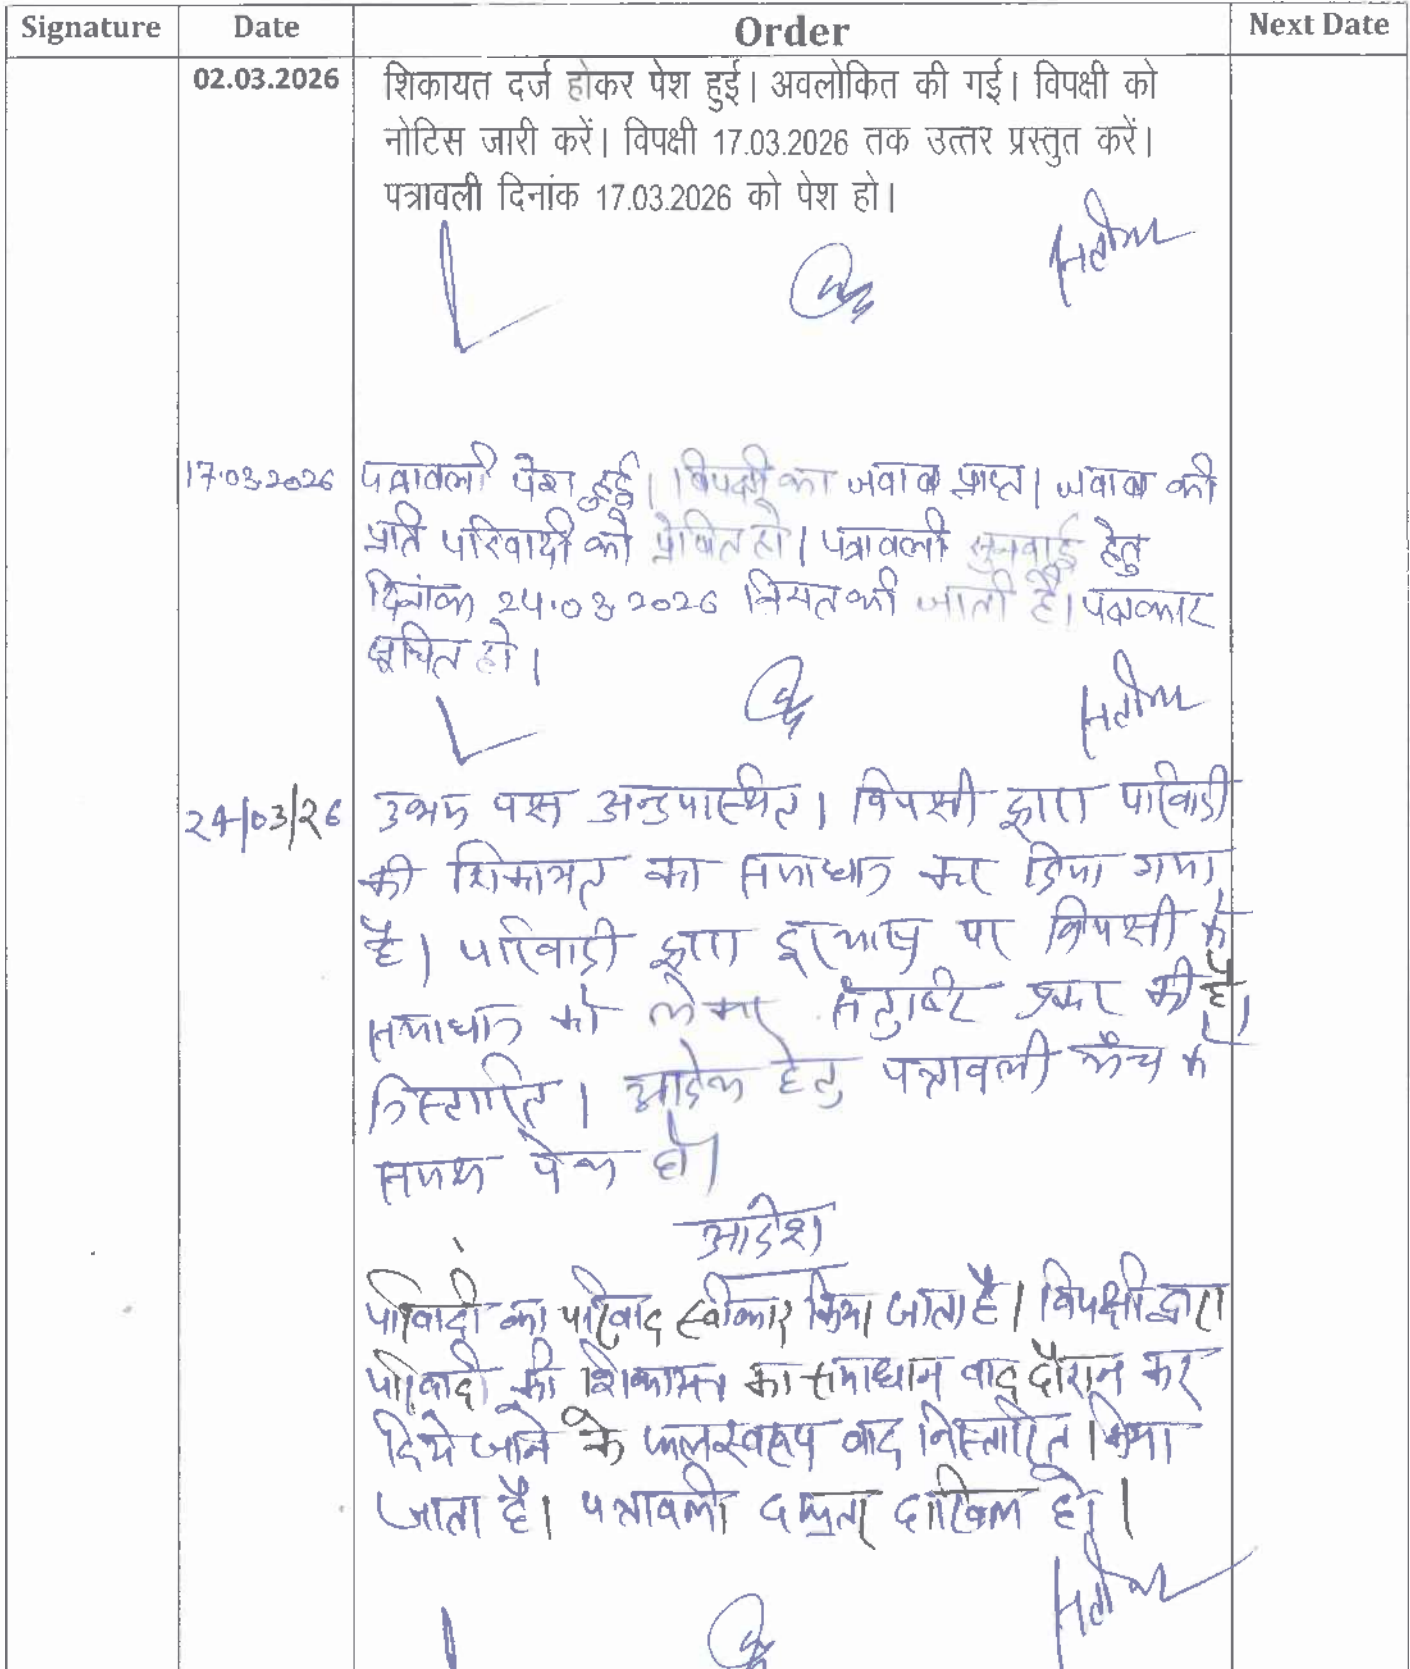 Signature Date Order Next Date
02.03.2026 शिकायत दर्ज होकर पेश हुई। अवलोकित की गई। विपक्षी को
नोटिस जारी करें। विपक्षी 17.03.2026 तक उत्तर प्रस्तुत करें।
पत्रावली दिनांक 17.03.2026 को पेश हो।
17.03.2026 पत्रावली पेश हुई। विपक्षी का जवाब प्राप्त। जवाब की
प्रति परिवादी को प्रेषित हो। पत्रावली सुनवाई हेतु
दिनांक 24.03.2026 नियत की जाती है। पक्षकार
सूचित हो।
24/03/26 उभय पक्ष अनुपस्थित। विपक्षी द्वारा परिवादी
की शिकायत का समाधान कर दिया गया
है। परिवादी द्वारा दूरभाष पर विपक्षी के
समाधान को लेकर संतुष्टि की है।
निस्तारित। आदेश हेतु पत्रावली मंच के
समक्ष पेश हो।
आदेश
परिवादी का परिवाद स्वीकार किया जाता है। विपक्षी द्वारा
परिवादी की शिकायत का समाधान वाद दौरान कर
दिये जाने के फलस्वरूप वाद निस्तारित किया
जाता है। पत्रावली दफ्तर दाखिल हो।